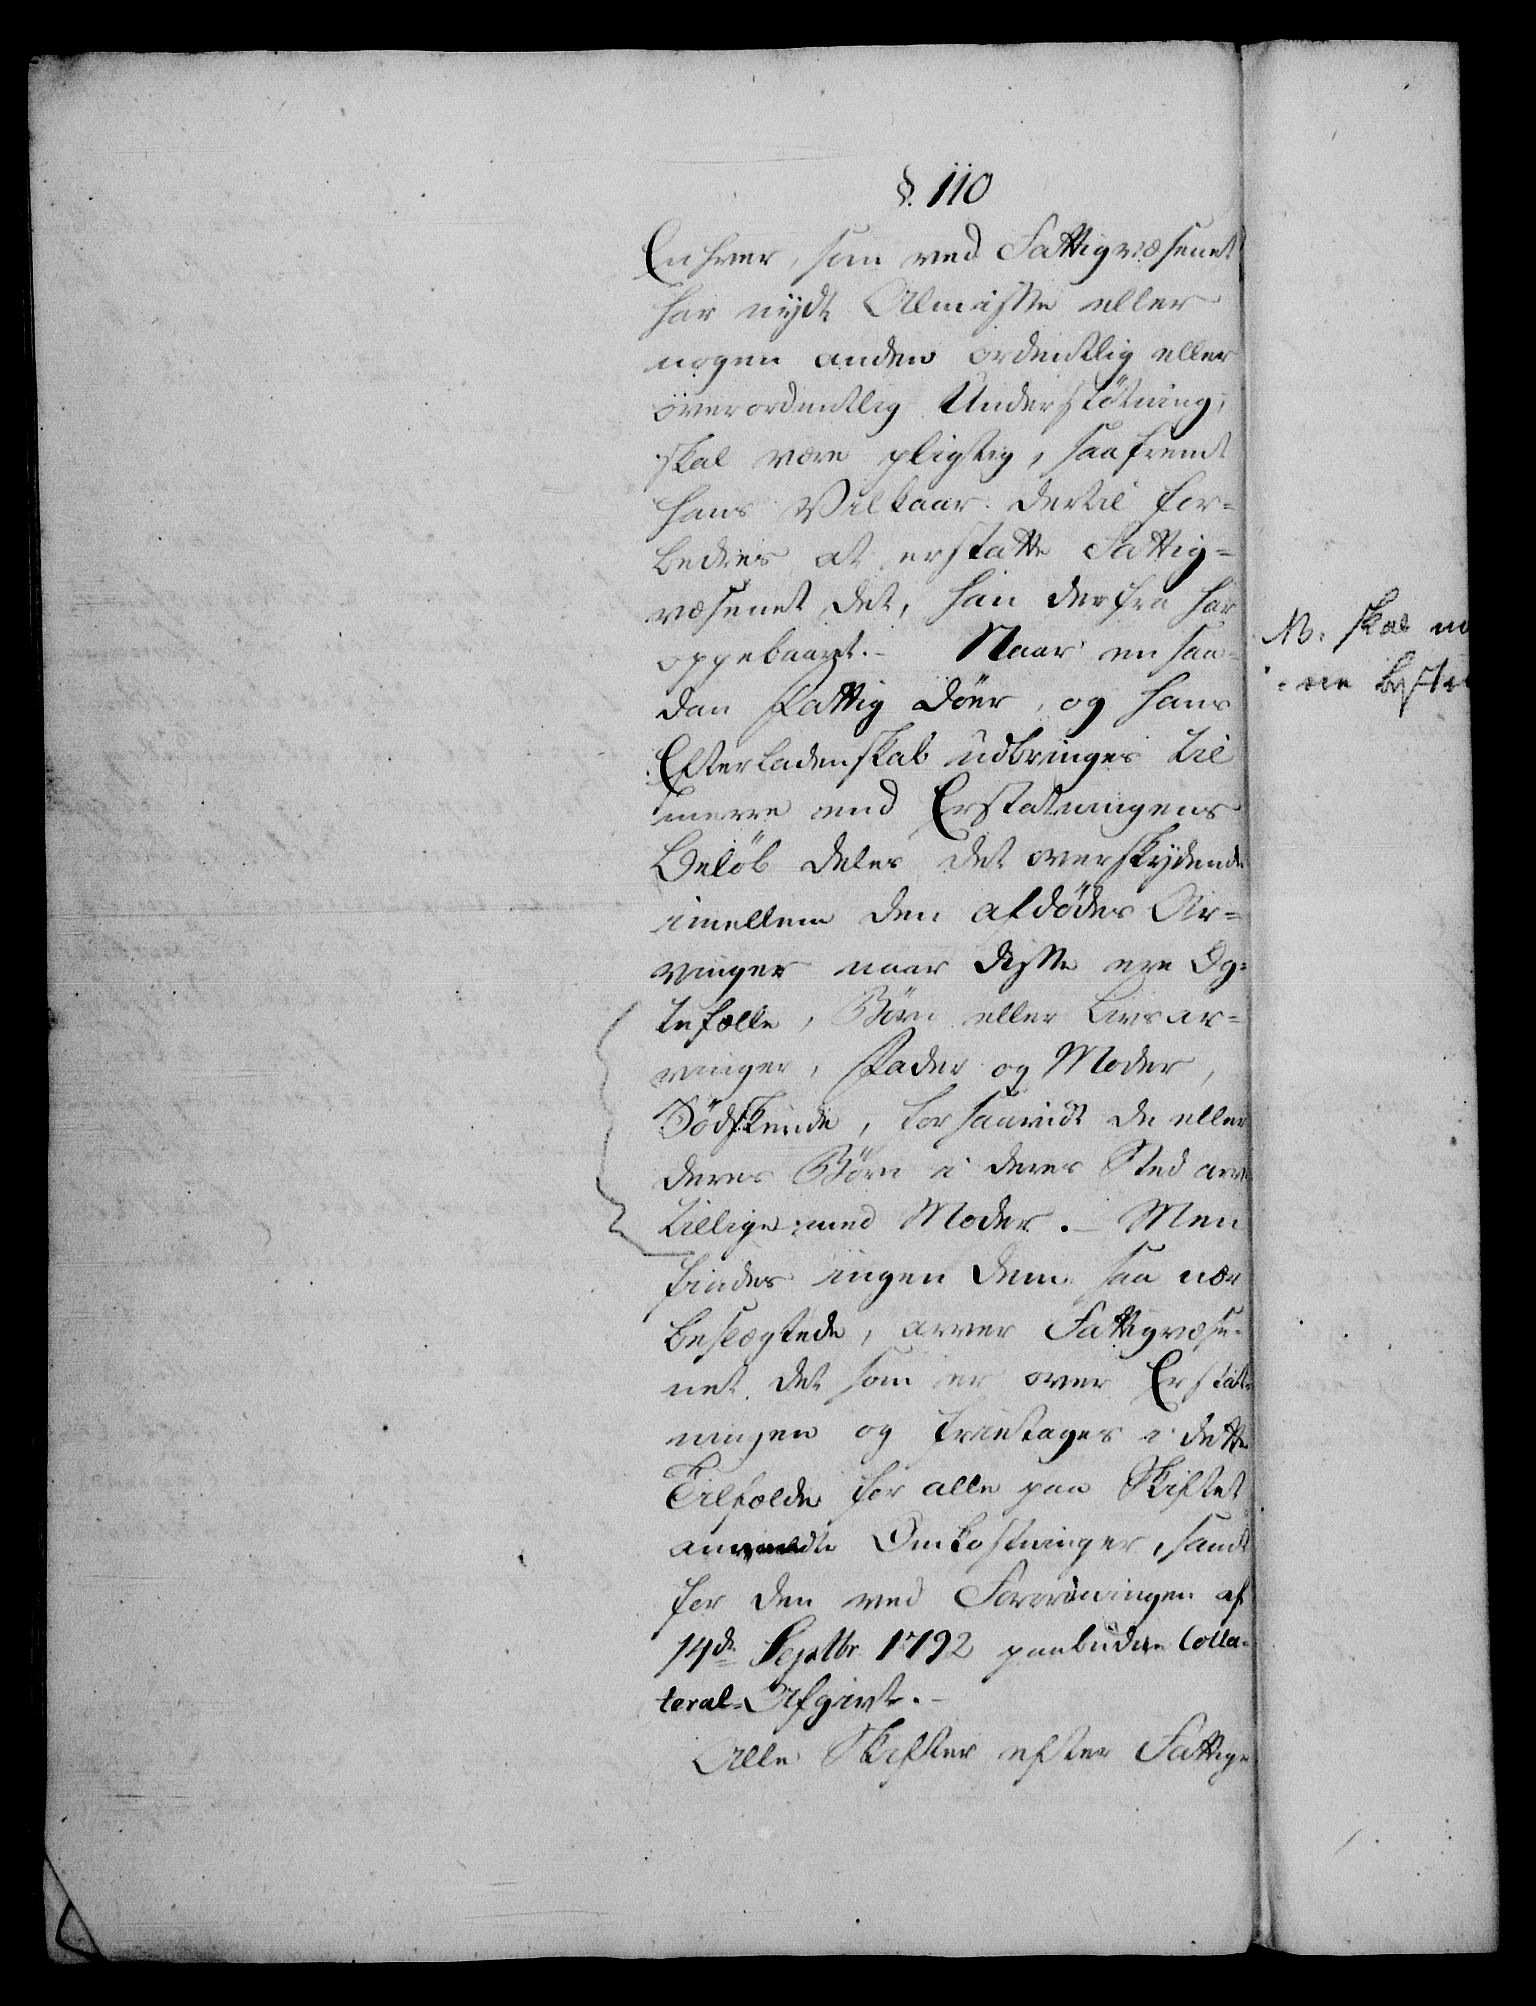 §. 110
Enhver, som ved Fattigvæsenet
har nydt Almisse eller
nogen anden ordentlig eller
överordentlig Understötning,
skal være pligtig, saafremt
hans Vilkaar dertil for=
bedres at erstatte Fattig=
væsenet det, han derfra har
oppebaaret.- Naar en saa=
dan Fattig döer, og hans
Efterladenskab udbringes til
mere end Erstatningens
Belöb deles det overskydende
imellem den afdödes Ar=
vinger naar disse ere Æg=
tefælle, Börn eller Livsar=
vinger, Fader og Moder,
Södskende, forsaavidt de eller
deres Börn i deres Sted arve
tillige med Moder.- Men
findes ingen dem saa nær
beslægtede, arver Fattigvæse=
net det som er over Erstat=
ningen og fritages i dette
Tilfælde for alle paa Skiftet
anvendte Omkostninger, samt
for den ved Forordningen af
14de Septbr 1792 paabudne Colla=
teral=Afgivt.-
Alle Skifter efter Fattige
NB. skal